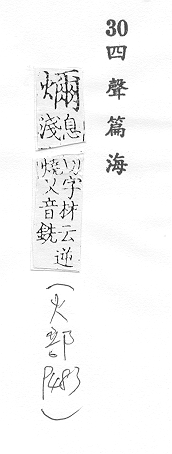 30 四聲篇海
息淺
切字林云逆
燒乂音銑
(火部 P483)